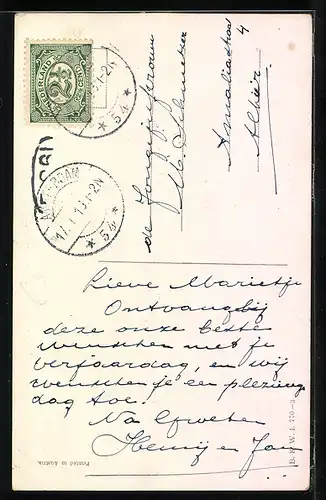 NEDERLAND
2½
CENT
AMSTERDAM
* 54 *
AMSTERDAM
* 54 *
de Jongejufvrouw
M. Schmeker
Amaliastraat
4
Alhier.
Lieve Marietje
Ontvang bij
deze onze beste
wenschen met je
verjaardag, en wij
wenschen je een plezierige
dag toe.
Na Groeten
Henrij en Jan
Printed in Austria.
B. K. W. I. 770-3